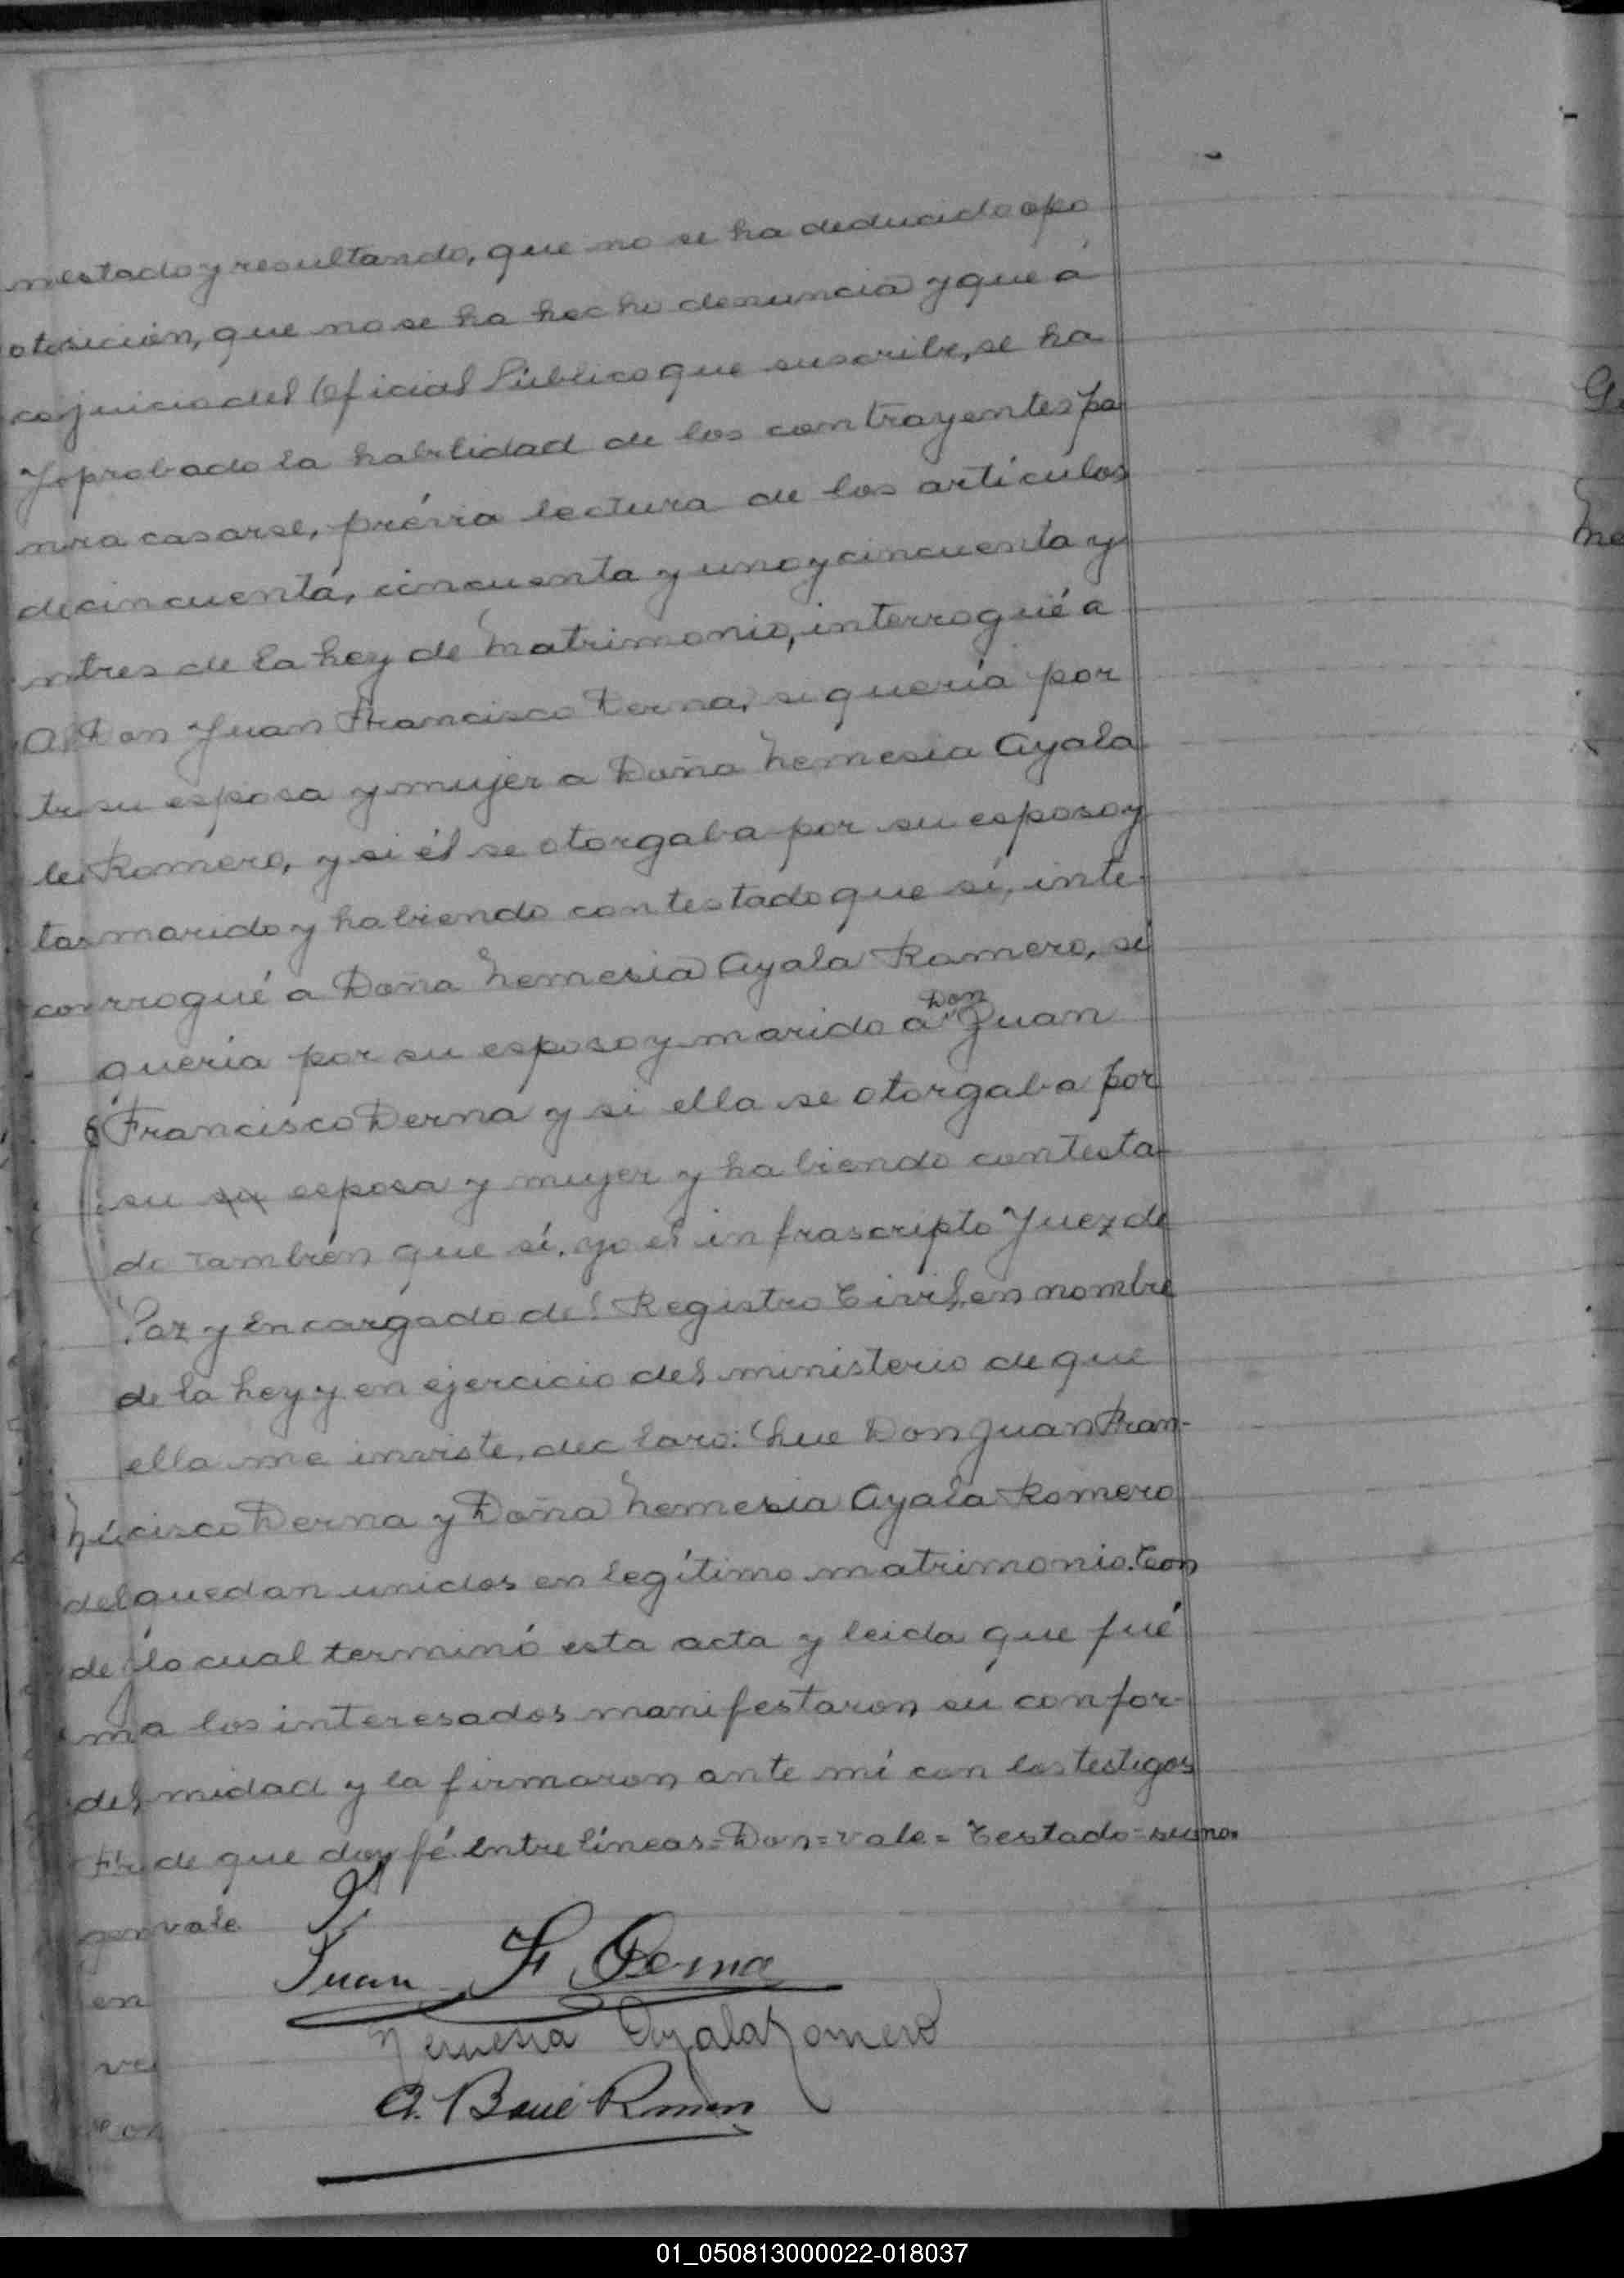 y resultando, que no se ha deducido opo
sición, que no se ha hecho denuncia y que á
juicio del Oficial Público que suscribe, se ha
probado la habilidad de los contrayentes pa
ra casarse, prévia lectura de los artículos
cincuenta, cincuenta y uno y cincuenta y
tres de la Ley de Matrimonio, interrogué a
Don Juan Francisco Derna, si quería por
su esposa y mujer a Doña Nemesia Ayala
Romero, y si él se otorgaba por su esposo y
marido y habiendo contestado que sí, inte-
rrogué a Doña Nemesia Ayala Romero, si
quería por su esposo y marido a Don Juan
Francisco Derna y si ella se otorgaba por
su su esposa y mujer y habiendo contesta-
do también que sí, yo el infrascripto Juez de
Paz y Encargado del Registro Civil, en nombre
de la Ley y en ejercicio del ministerio de que
ella me inviste, declaro: Que Don Juan Fran-
cisco Derna y Doña Nemesia Ayala Romero
quedan unidos en legítimo matrimonio. Con
lo cual terminó esta acta y leida que fué
a los interesados manifestaron su confor-
midad y la firmaron ante mí con los testigos
de que doy fé. Entre líneas = Don = vale = Testado = su no
vale
Juan F. Derna
Nemesia Ayala Romero
A.
01_050813000022-018037